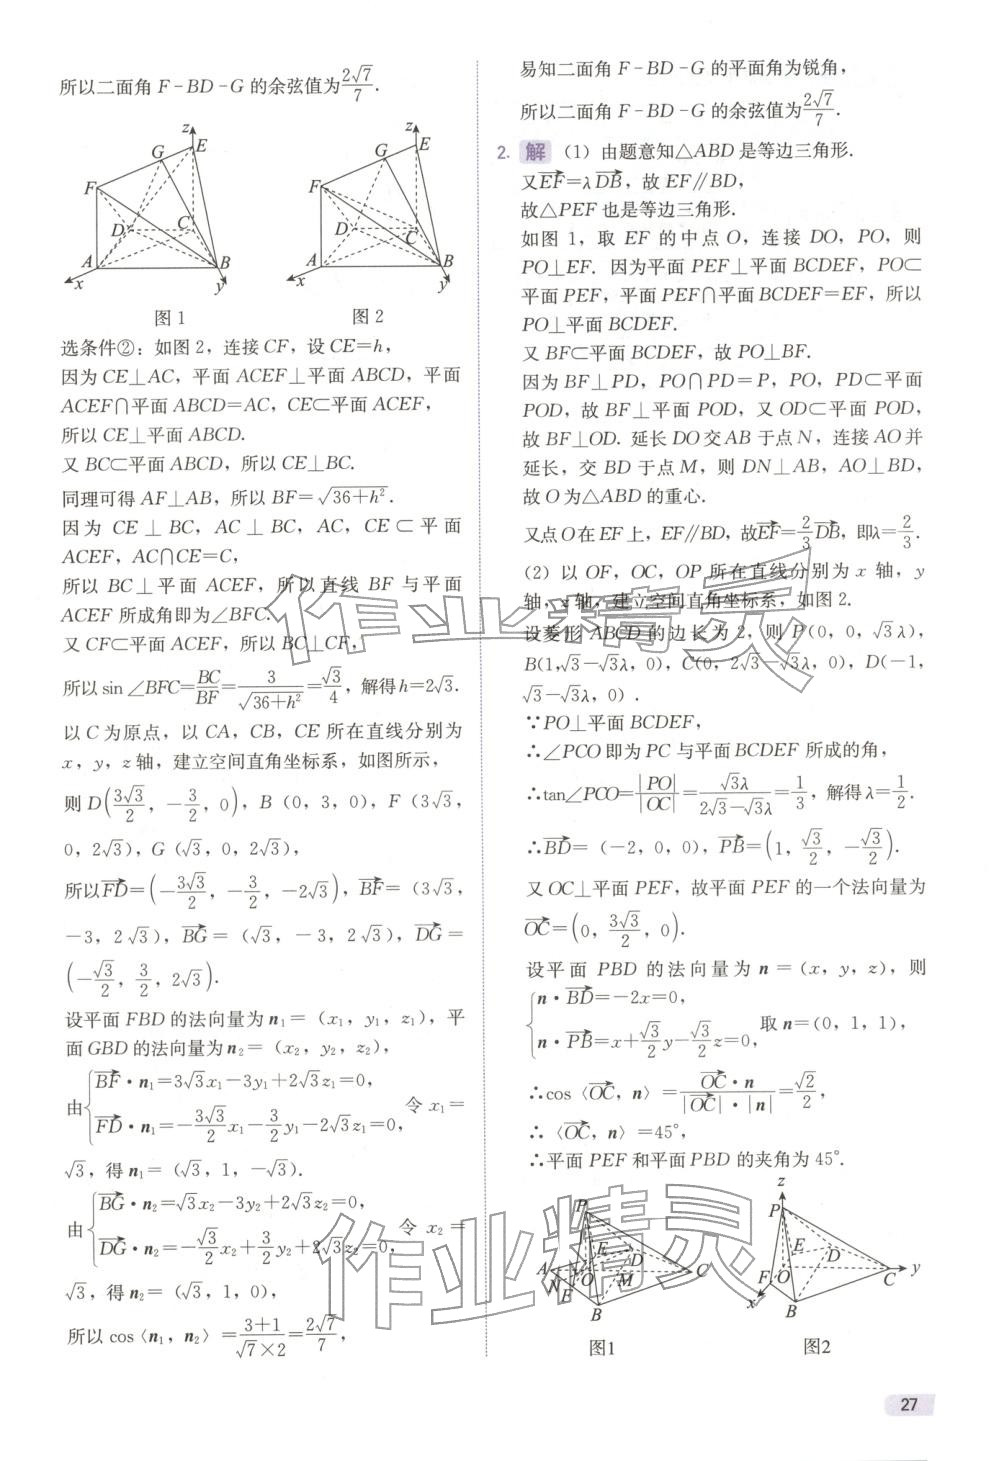 所以二面角 F-BD-G 的余弦值为2√7/7.
z
G
E
F
D
C
A
B
x
y
图1
z
G
E
F
D
C
A
B
x
y
图2
选条件②：如图2，连接 CF，设 CE=h，
因为 CE⊥AC，平面 ACEF⊥平面 ABCD，平面
ACEF∩平面 ABCD=AC，CE⊂平面 ACEF，
所以 CE⊥平面 ABCD.
又 BC⊂平面 ABCD，所以 CE⊥BC.
同理可得 AF⊥AB，所以 BF=√(36+h²).
因为 CE⊥BC，AC⊥BC，AC，CE⊂平面
ACEF，AC∩CE=C，
所以 BC⊥平面 ACEF，所以直线 BF 与平面
ACEF 所成角即为∠BFC.
又 CF⊂平面 ACEF，所以 BC⊥CF，
所以 sin∠BFC=BC/BF=3/√(36+h²)=√3/4，解得 h=2√3.
以 C 为原点，以 CA，CB，CE 所在直线分别为
x，y，z 轴，建立空间直角坐标系，如图所示，
则 D(3√3/2，-3/2，0)，B（0，3，0），F（3√3，
0，2√3），G（√3，0，2√3），
所以FD→=(-3√3/2，-3/2，-2√3)，BF→=（3√3，
-3，2√3），BG→=（√3，-3，2√3），DG→=
(-√3/2，3/2，2√3).
设平面 FBD 的法向量为 n₁=（x₁，y₁，z₁），平
面 GBD 的法向量为 n₂=（x₂，y₂，z₂），
由{BF→·n₁=3√3x₁-3y₁+2√3z₁=0，
FD→·n₁=-3√3/2x₁-3/2y₁-2√3z₁=0， 令 x₁=
√3，得 n₁=（√3，1，-√3）.
由{BG→·n₂=√3x₂-3y₂+2√3z₂=0，
DG→·n₂=-√3/2x₂+3/2y₂+2√3z₂=0， 令 x₂=
√3，得 n₂=（√3，1，0），
所以 cos〈n₁，n₂〉=(3+1)/(√7×2)=2√7/7，
易知二面角 F-BD-G 的平面角为锐角，
所以二面角 F-BD-G 的余弦值为2√7/7.
2. 解 （1）由题意知△ABD 是等边三角形.
又EF→=λDB→，故 EF∥BD，
故△PEF 也是等边三角形.
如图1，取 EF 的中点 O，连接 DO，PO，则
PO⊥EF. 因为平面 PEF⊥平面 BCDEF，PO⊂
平面 PEF，平面 PEF∩平面 BCDEF=EF，所以
PO⊥平面 BCDEF.
又 BF⊂平面 BCDEF，故 PO⊥BF.
因为 BF⊥PD，PO∩PD=P，PO，PD⊂平面
POD，故 BF⊥平面 POD，又 OD⊂平面 POD，
故 BF⊥OD. 延长 DO 交 AB 于点 N，连接 AO 并
延长，交 BD 于点 M，则 DN⊥AB，AO⊥BD，
故 O 为△ABD 的重心.
又点 O 在 EF 上，EF∥BD，故EF→=2/3DB→，即λ=2/3.
（2）以 OF，OC，OP 所在直线分别为 x 轴，y
轴，z 轴，建立空间直角坐标系，如图2.
设菱形 ABCD 的边长为2，则 P(0，0，√3λ)，
B(1,√3-√3λ，0)，C(0，2√3-√3λ，0)，D(-1，
√3-√3λ，0).
∵PO⊥平面 BCDEF，
∴∠PCO 即为 PC 与平面 BCDEF 所成的角，
∴tan∠PCO=|PO|/|OC|=√3λ/(2√3-√3λ)=1/3，解得 λ=1/2.
∴BD→=（-2，0，0），PB→=(1，√3/2，-√3/2).
又 OC⊥平面 PEF，故平面 PEF 的一个法向量为
OC→=(0，3√3/2，0).
设平面 PBD 的法向量为 n=(x，y，z)，则
{n·BD→=-2x=0，
n·PB→=x+√3/2y-√3/2z=0， 取 n=(0，1，1)，
∴cos〈OC→，n〉=OC→·n/(|OC→|·|n|)=√2/2，
∴〈OC→，n〉=45°，
∴平面 PEF 和平面 PBD 的夹角为45°.
P
A
E
D
N
F
O
M
C
B
图1
z
P
E
D
F
O
C
y
x
B
图2
作业精灵
作业精灵
27